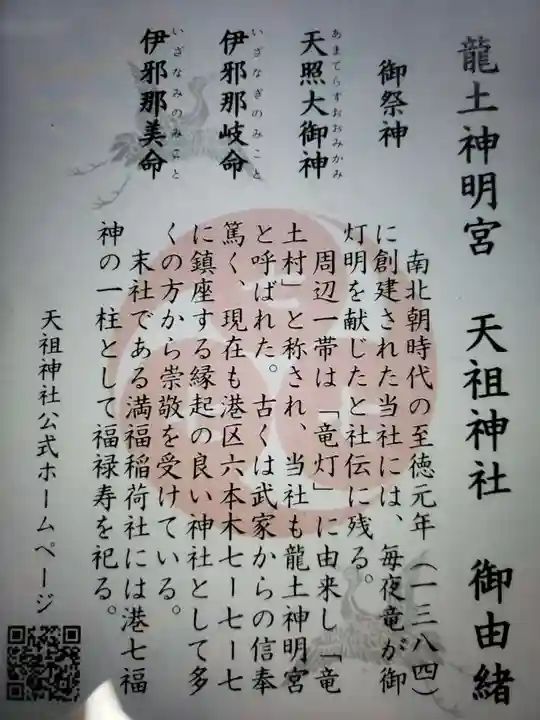 龍土神明宮　天祖神社　御由緒
御祭神
あまてらすおおみかみ
天照大御神
いざなぎのみこと
伊邪那岐命
いざなみのみこと
伊邪那美命
南北朝時代の至徳元年（一三八四）
に創建された当社には、毎夜竜が御
灯明を献じたと社伝に残る。
周辺一帯は「竜灯」に由来し「竜
土村」と称され、当社も龍土神明宮
と呼ばれた。古くは武家からの信奉
篤く、現在も港区六本木七ー七ー七
に鎮座する縁起の良い神社として多
くの方から崇敬を受けている。
末社である満福稲荷社には港七福
神の一柱として福禄寿を祀る。
天祖神社公式ホームページ